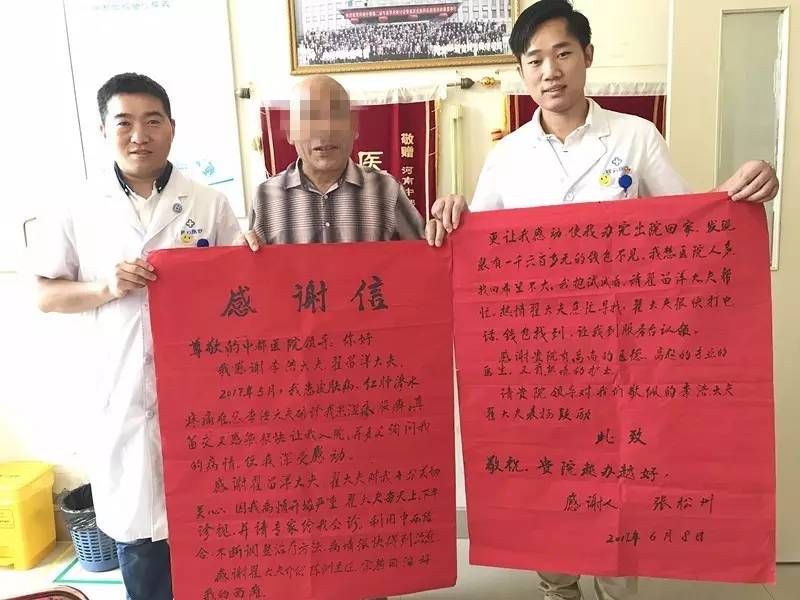 敬赠
河南中
医
感谢信
尊敬的中都医院领导：你好
我感谢李浩大夫翟苗洋大夫。
2017年5月，我患皮肤病、红肿渗水
疼痛难忍李浩大夫确诊我患湿疹
交叉感染很快让我入院，并多次询问我
的病情，使我深受感动。
感谢翟苗洋大夫，翟大夫对我十分关切
关心，因我病情开始严重翟大夫每天上下午
诊视，并请专家给我会诊，利用中西结
合，不断调整治疗方法，病情很快得到治愈
感谢翟大夫
我的西
更让我感动，使我办完出院回家，发现
装有一千六百多元的钱包不见，我想医院人多
找回希望不大，我抱试试看，请翟苗洋大夫帮
忙，热情翟大夫急忙寻找，翟大夫很快打电
话，钱包找到，让我到服务台认领。
感谢贵院有高尚的医德，高超的专业的
医生，又有热情的护士。
请贵院领导对我们敬佩的李浩大夫
翟大夫表扬鼓励
此致
敬祝。贵院越办越好。
感谢人 张松州
6月8日